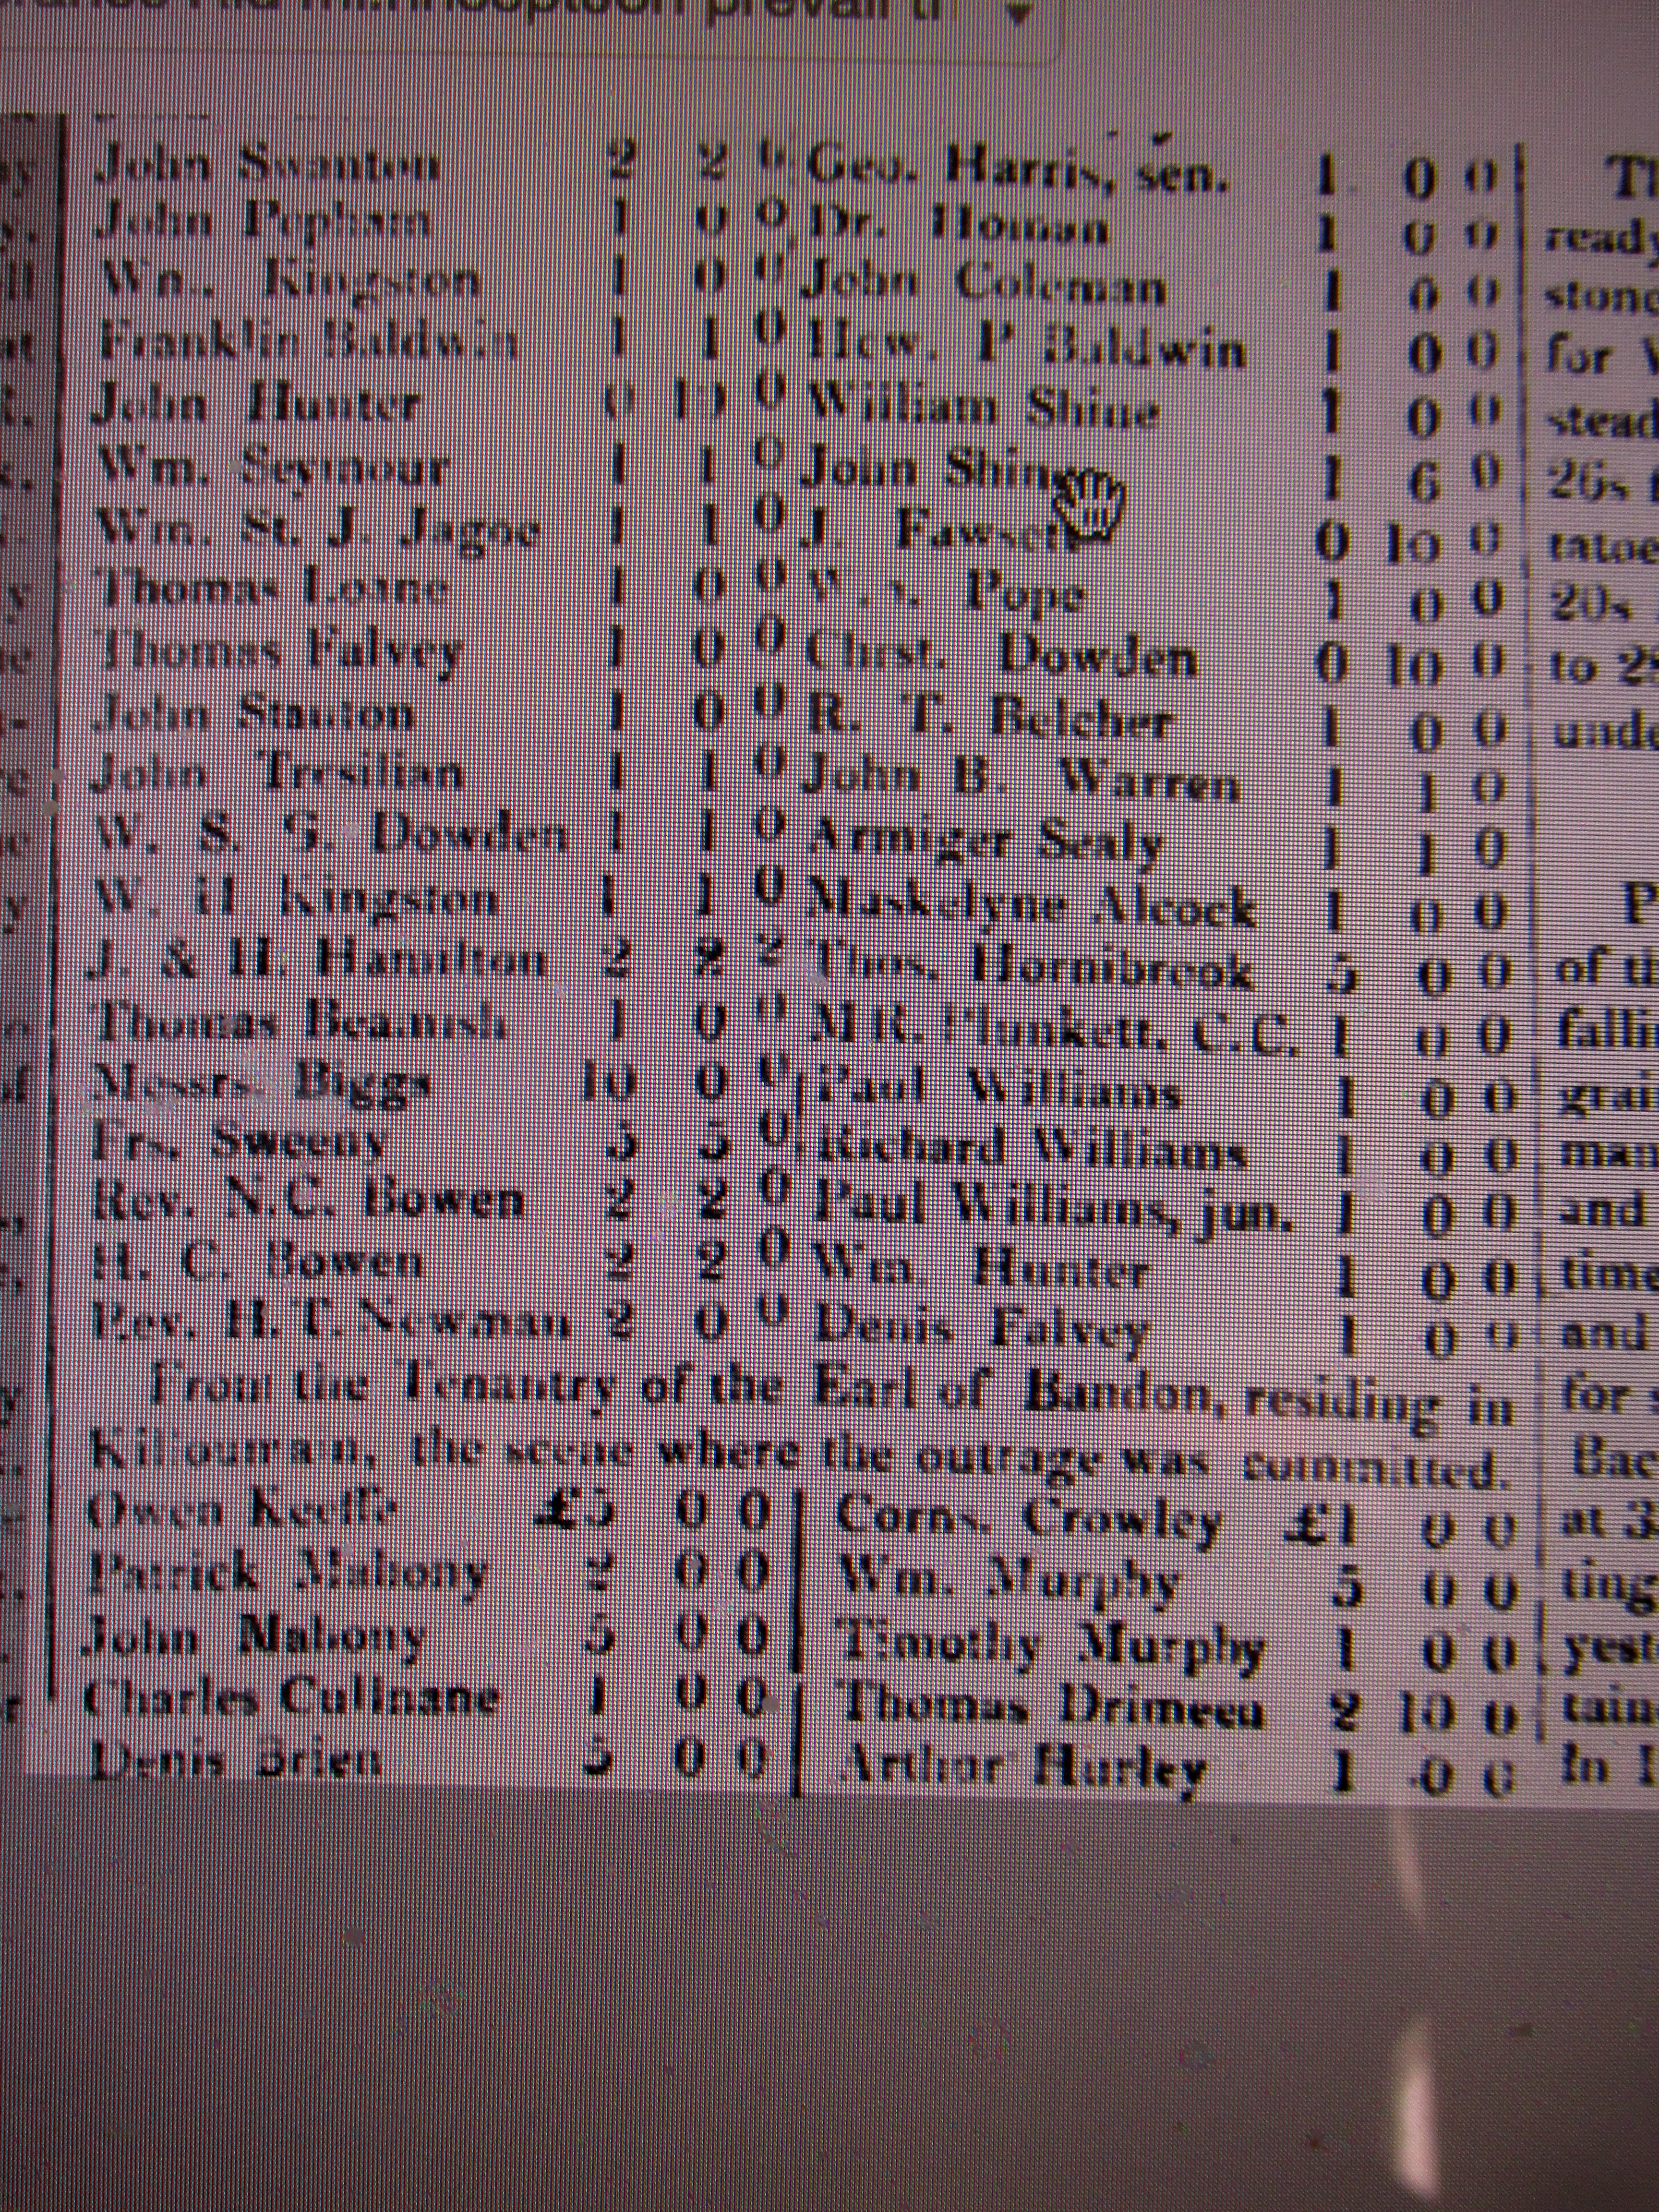 prevail
John Swanton 2 2 0 Geo. Harris, sen. 1 0 0
John Popham 1 0 0 Dr. Homan 1 0 0 ready
Wm. Kingston 1 0 0 John Coleman 1 0 0
Franklin Baldwin 1 1 0 Hew. P Baldwin 1 0 0 for
John Hunter 0 10 0 William Shine 1 0 0
Wm. Seymour 1 1 0 John 1 6 0 26s
Wm. St. J. Jagoe 1 1 0 J. 0 10 0
Thomas Loane 1 0 0 Pope 1 0 0 20s
Thomas Falvey 1 0 0 Chrst. Dowden 0 10 0 to
John Stanton 1 0 0 R. T. Belcher 1 0 0
John Tresilian 1 1 0 John B. Warren 1 1 0
W. S. G. Dowden 1 1 0 Armiger Sealy 1 1 0
W. H Kingston 1 1 0 Maskelyne Alcock 1 0 0
J. & H. Hamilton 2 2 2 Thos. Hornibrook 5 0 0 of
Thomas Beamish 1 0 0 M R. Plunkett, C.C. 1 0 0
Messrs. Biggs 10 0 0 Paul Williams 1 0 0
Frs. Sweeny 5 5 0 Richard Williams 1 0 0
Rev. N.C. Bowen 2 2 0 Paul Williams, jun. 1 0 0 and
H. C. Bowen 2 2 0 Wm. Hunter 1 0 0 time
Rev. H. T. Newman 2 0 0 Denis Falvey 1 0 0 and
From the Tenantry of the Earl of Bandon, residing in for
the scene where the outrage was committed.
Owen Keeffe £5 0 0 Corns. Crowley £1 0 0 at
Patrick Mahony 2 0 0 Wm. Murphy 5 0 0 ting
John Mahony 5 0 0 Timothy Murphy 1 0 0
Charles Cullnane 1 0 0 Thomas Drimeen 2 10 0
Denis Brien 5 0 0 Arthur Hurley 1 0 0 In